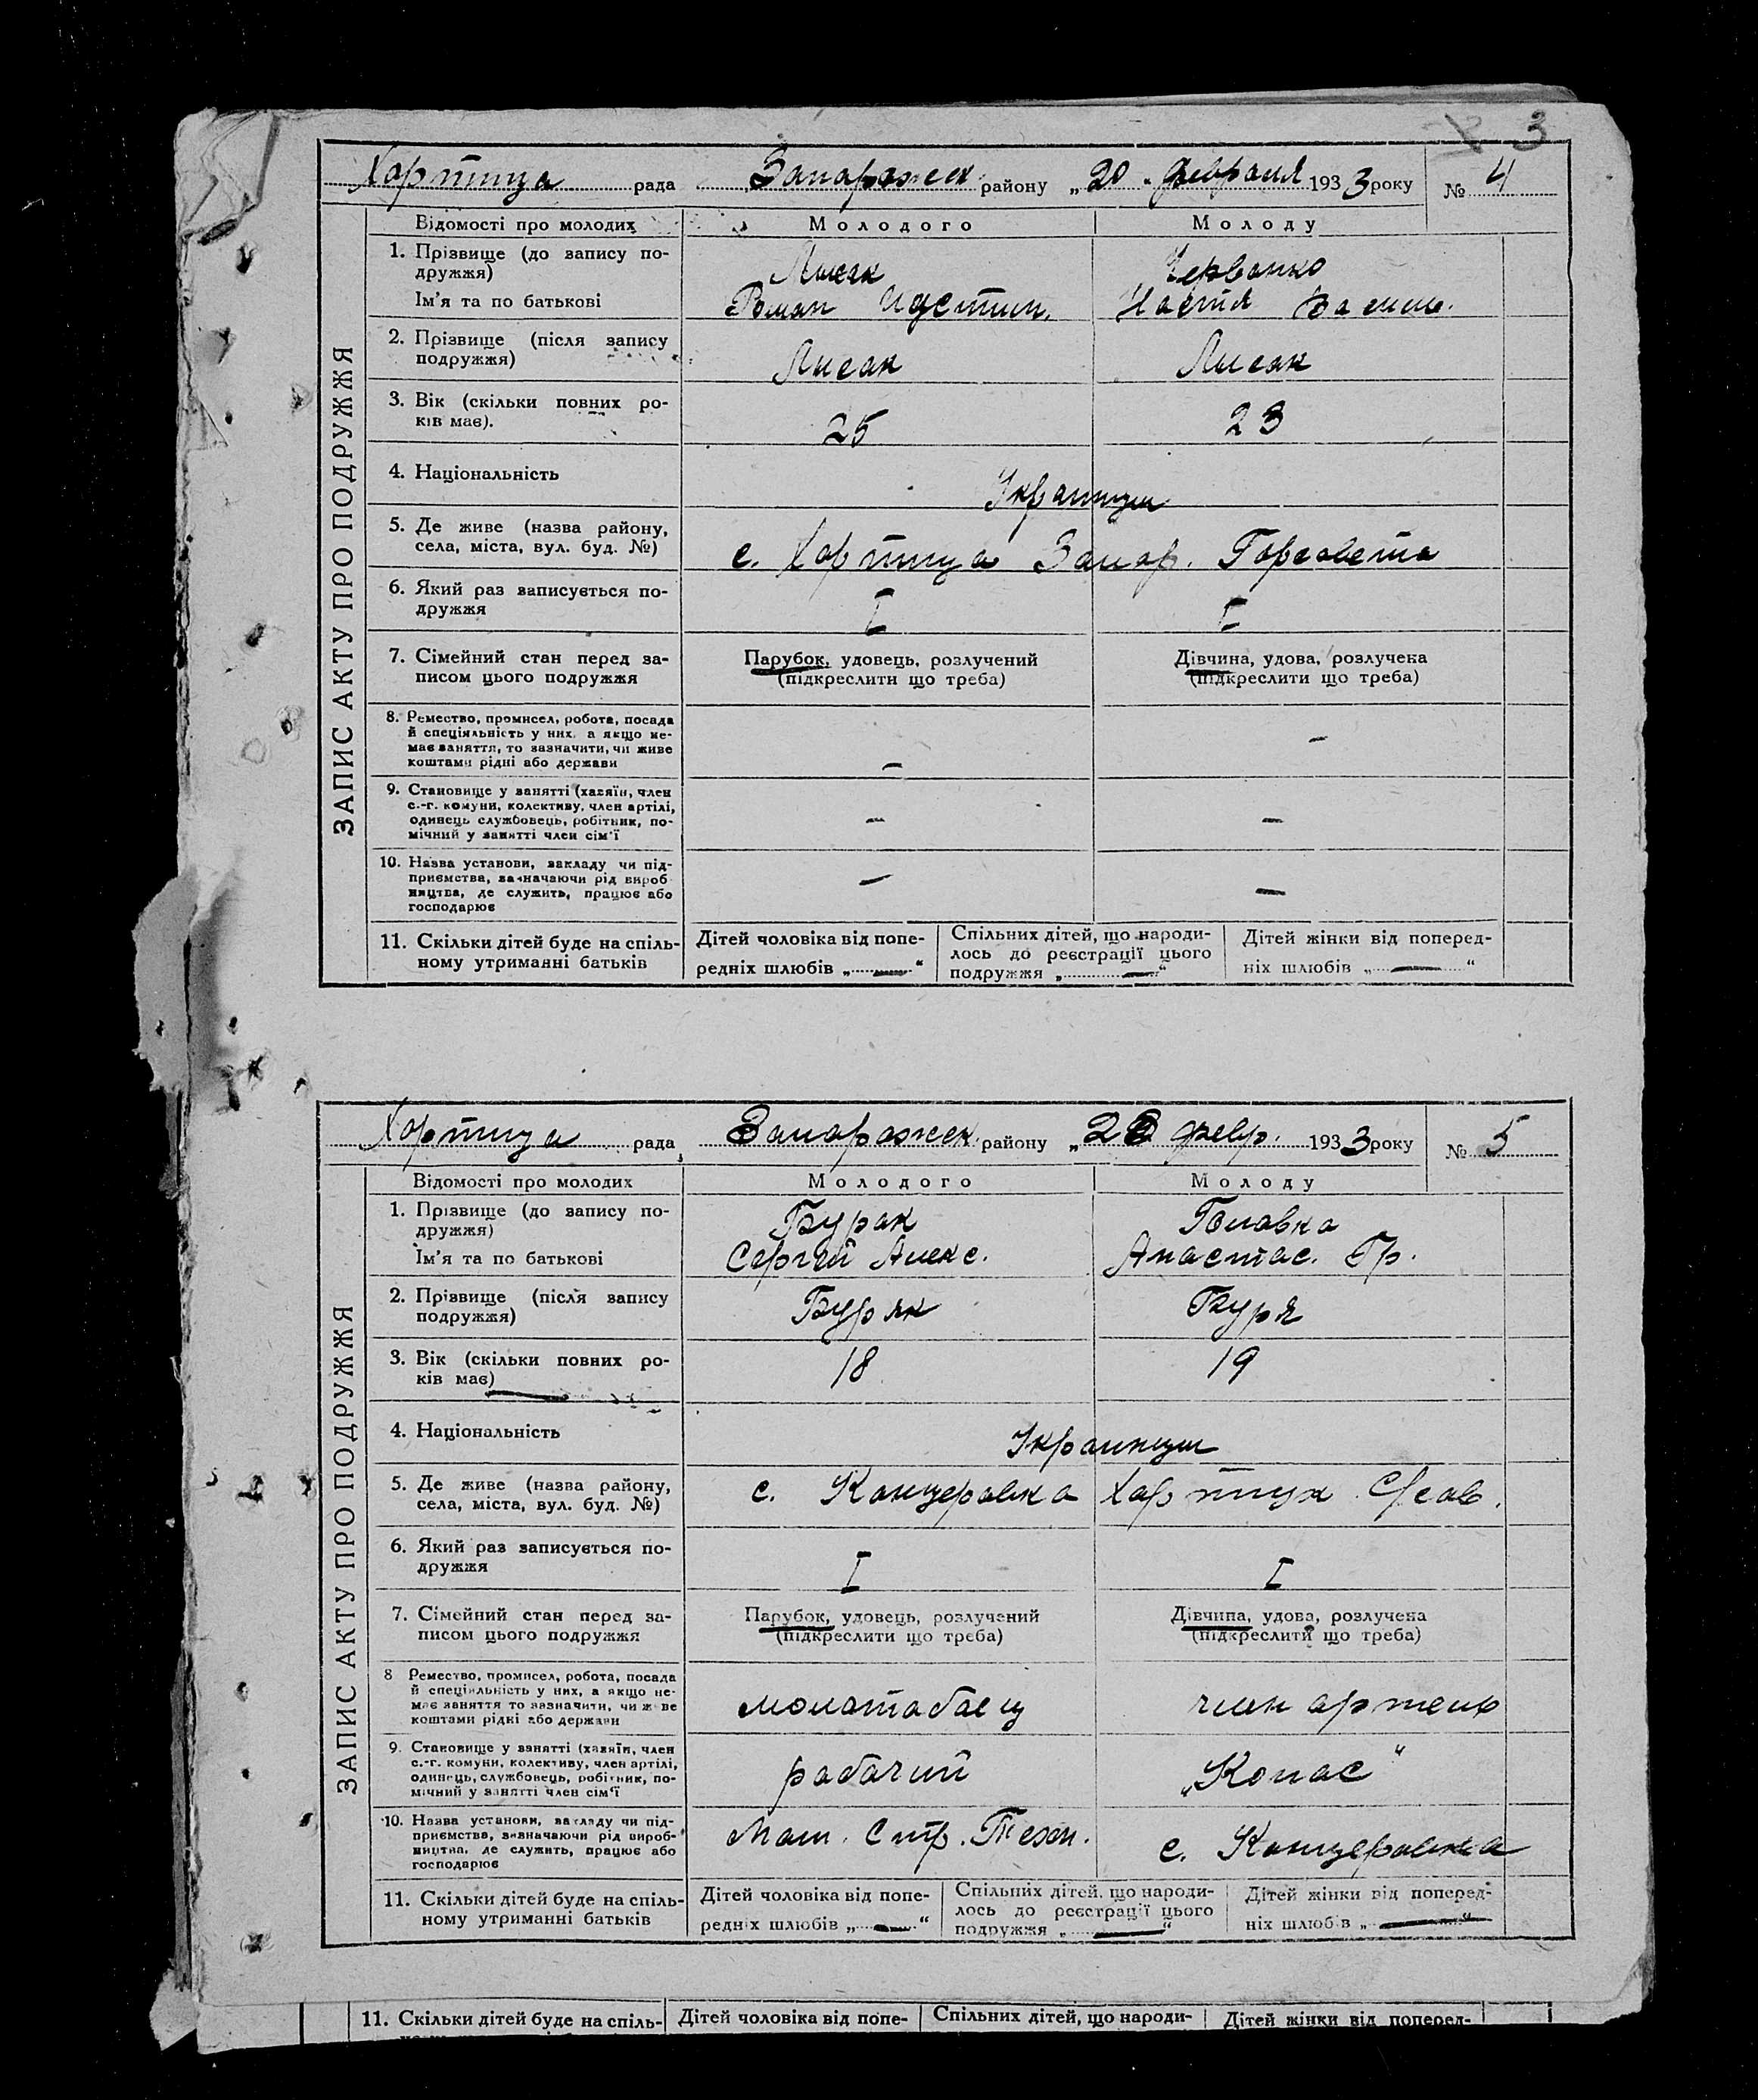 3
Хортица рада Запорожск. району „20 „ февраля 1933 року № 4
ЗАПИС АКТУ ПРО ПОДРУЖЖЯ
Відомості про молодих Молодого Молоду
1. Прізвище (до запису по-
дружжя) Лисак Червонко
Ім'я та по батькові Роман Иустин. Настя Васил.
2. Прізвище (після запису
подружжя) Лисак Лисак
3. Вік (скільки повних ро-
ків має). 25 23
4. Національність Украинцы
5. Де живе (назва району,
села, міста, вул. буд. №) с. Хортица Запор. Горсовета
6. Який раз записується по-
дружжя I I
7. Сімейний стан перед за-
писом цього подружжя
Парубок, удовець, розлучений
(підкреслити що треба)
Дівчина, удова, розлучена
(підкреслити що треба)
8. Ремество, промисел, робота, посада
й спеціяльність у них, а якщо не-
має заняття, то зазначити, чи живе
коштами рідні або держави – –
9. Становище у занятті (хазяїн, член
с.-г. комуни, колективу, член артілі,
одинець службовець, робітник, по-
мічний у занятті член сім'ї – –
10. Назва установи, закладу чи під-
приємства, зазначаючи рід вироб-
ництва, де служить, працює або
господарює – –
11. Скільки дітей буде на спіль-
ному утриманні батьків
Дітей чоловіка від попе-
редніх шлюбів „ — “
Спільних дітей, що народи-
лось до реєстрації цього
подружжя „ — “
Дітей жінки від поперед-
ніх шлюбів „ — “
Хортица рада Запорожск. району „ февр. 1933 року № 5
ЗАПИС АКТУ ПРО ПОДРУЖЖЯ
Відомості про молодих Молодого Молоду
1. Прізвище (до запису по-
дружжя) Буряк Головка
Ім'я та по батькові Сергей Алекс. Анастас. Гр.
2. Прізвище (після запису
подружжя) Буряк Буря
3. Вік (скільки повних ро-
ків має) 18 19
4. Національність Украинцы
5. Де живе (назва району,
села, міста, вул. буд. №) с. Канцеровка Хортицк
6. Який раз записується по-
дружжя I I
7. Сімейний стан перед за-
писом цього подружжя
Парубок, удовець, розлучений
(підкреслити що треба)
Дівчина, удова, розлучена
(підкреслити що треба)
8 Ремество, промисел, робота, посада
й спеціяльність у них, а якщо не-
має заняття то зазначити, чи живе
коштами рідні або держави молотобоец член артели
9. Становище у занятті (хазяїн, член
с.-г. комуни, колективу, член артілі,
одинець, службовець, робітник, по-
мічний у занятті член сім'ї рабочий „Колос“
10. Назва установи, закладу чи під-
приємства, зазначаючи рід вироб-
ництва, де служить, працює або
господарює Маш. Стр. Техн. с. Канцеровка
11. Скільки дітей буде на спіль-
ному утриманні батьків
Дітей чоловіка від попе-
редніх шлюбів „ — “
Спільних дітей, що народи-
лось до реєстрації цього
подружжя „ — “
Дітей жінки від поперед-
ніх шлюбів „ — “
11. Скільки дітей буде на спіль- Дітей чоловіка від попе- Спільних дітей, що народи- Дітей жінки від поперед-